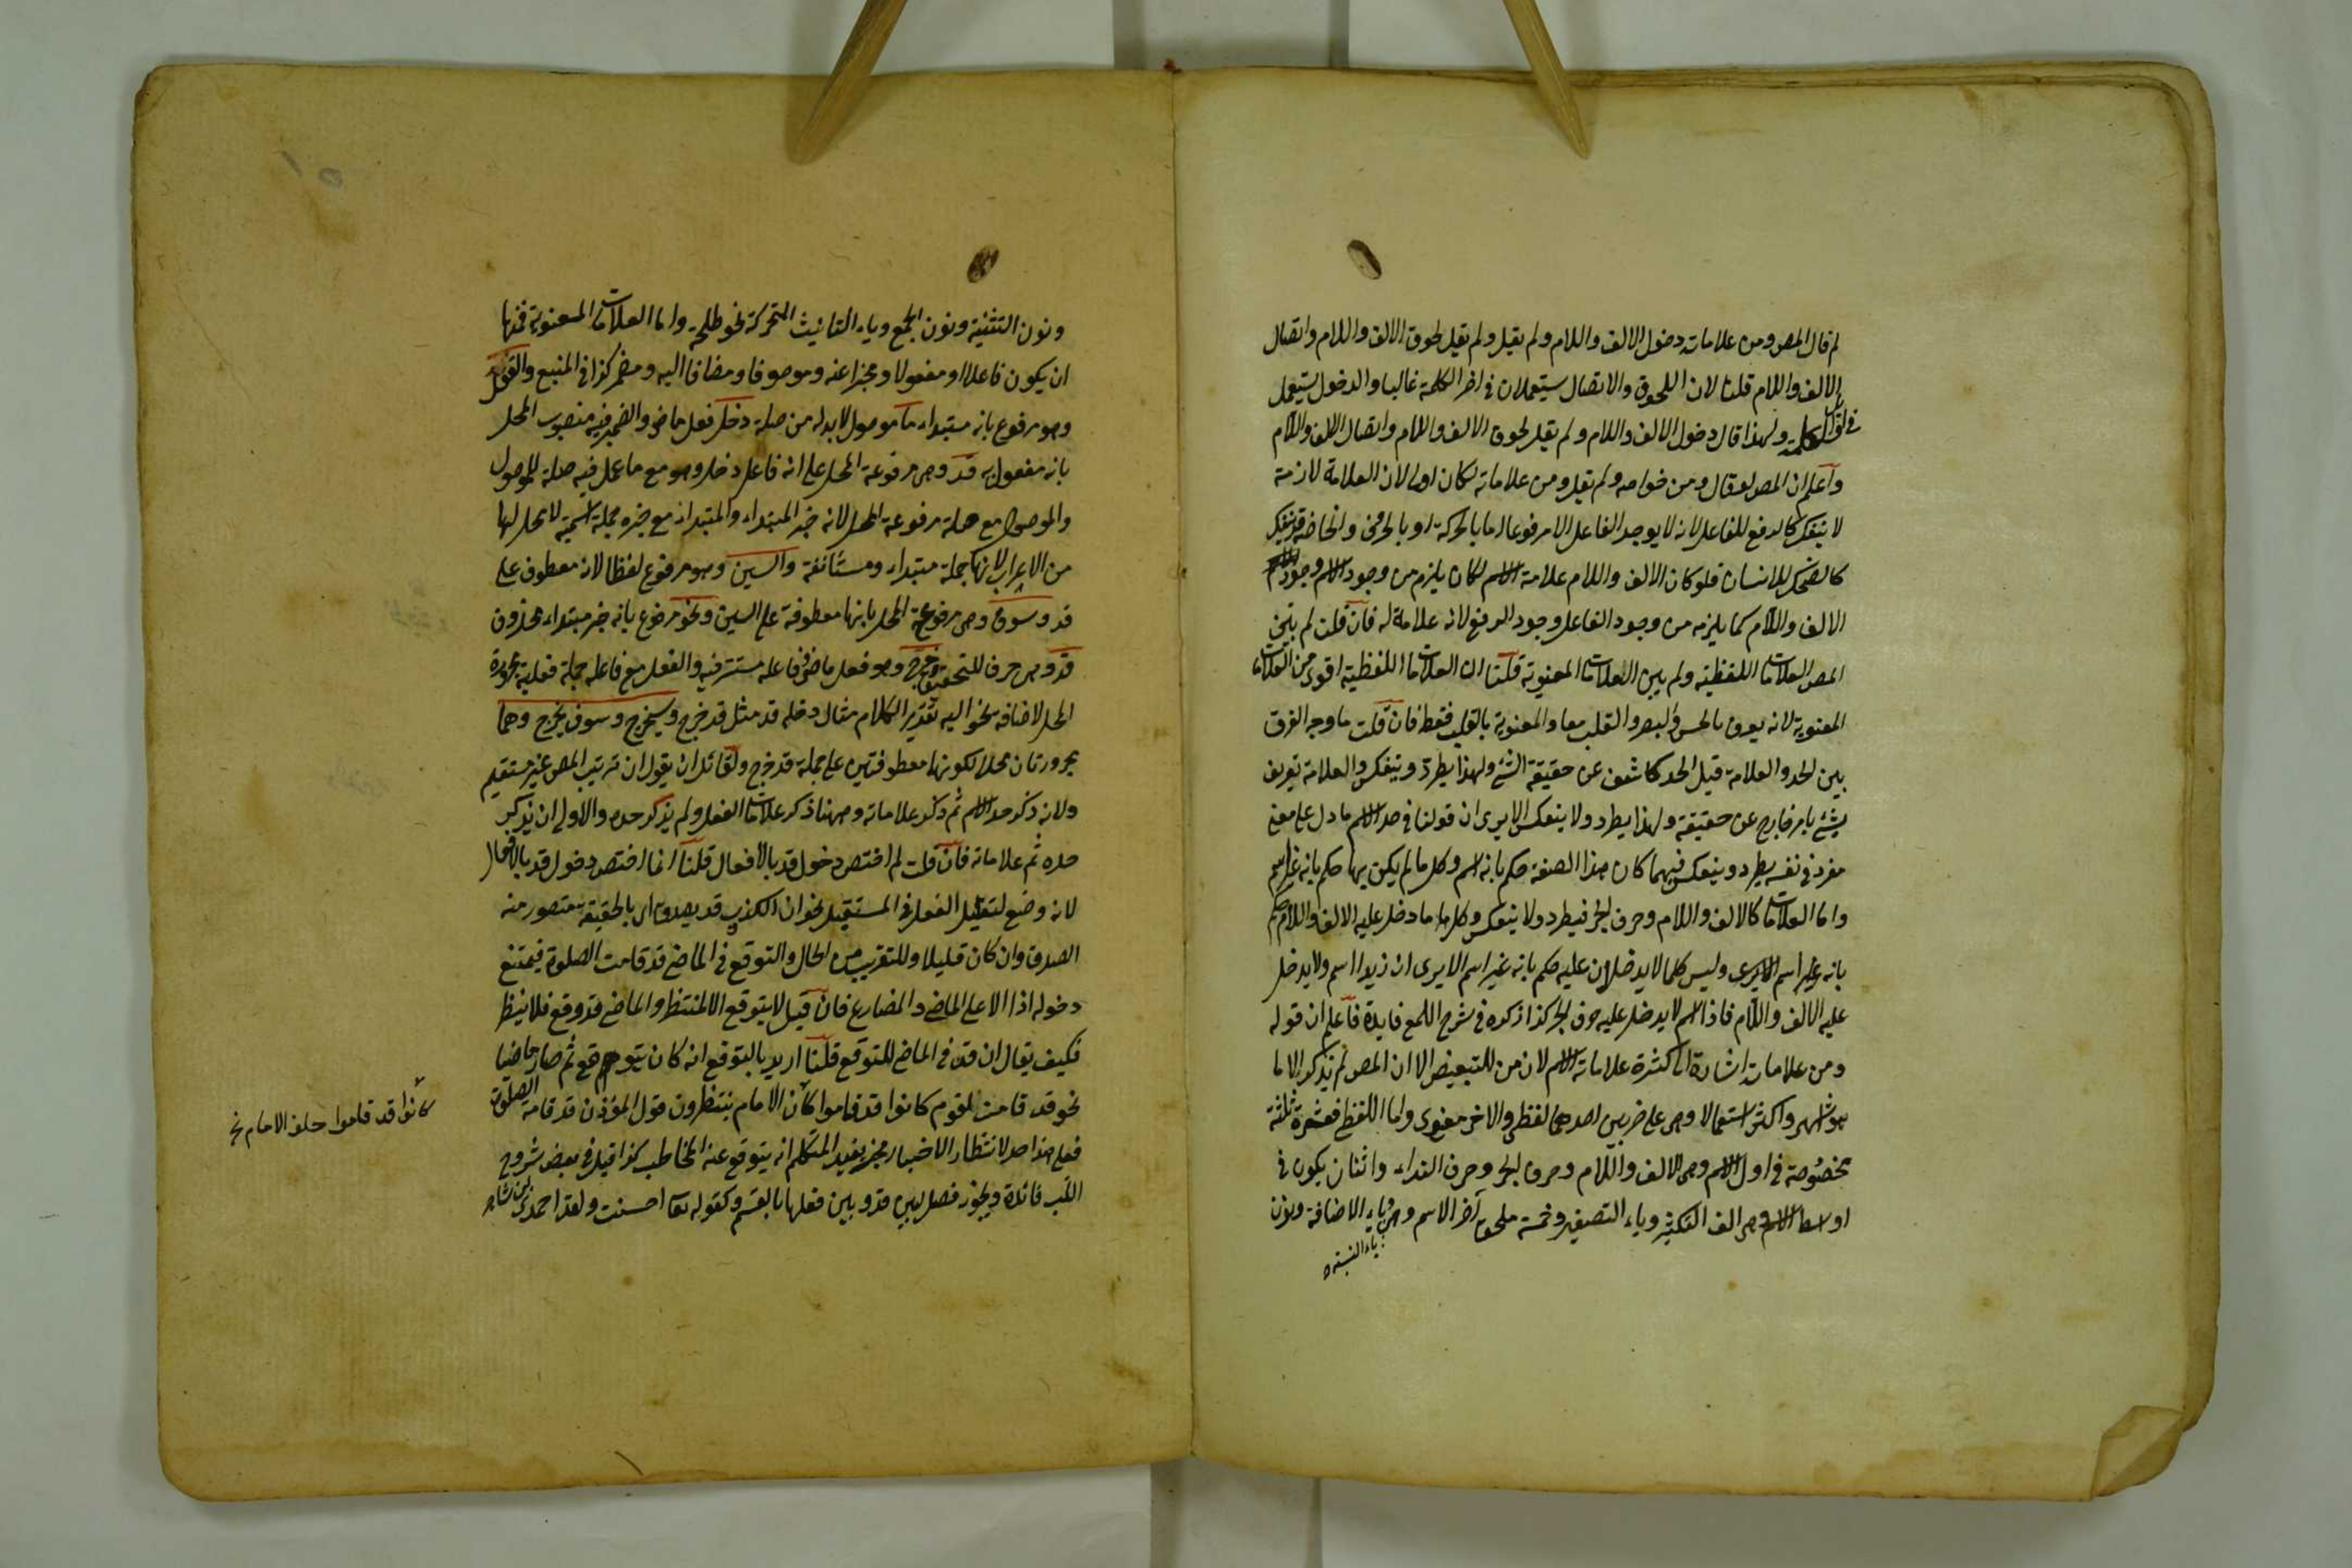 لم قال المص ومن علاماته دخول الالف واللام ولم يقل ولم يقل لحوق الالف واللام واتصال
الالف واللام قلنا لان اللحوق والاتصال يستعملان في اخر الكلمة غالبا والدخول يستعمل
في اول كلمة ولهذا قال دخول الالف واللام ولم يقل لحوق الالف واللام واتصال الالف واللام
واعلم ان المص لو قال ومن خواصه ولم يقل ومن علاماته لكان اولى لان العلامة لازمة
لا ينفك كالرفع للفاعل لانه لا يوجد الفاعل الا مرفوعا اما بالحركة او بالحرف والخاصة قد ينفك
كالضحك للانسان فلو كان الالف واللام علامة الاسم لكان يلزم من وجود الاسم وجود
الالف واللام كما يلزم من وجود الفاعل وجود الرفع لانه علامة له فان قلت لم بين
المص العلامات اللفظية ولم يبين العلامات المعنوية قلنا ان العلامات اللفظية اقوى من العلامات
المعنوية لانه يعرف بالحس والبصر والقلب معا والمعنوية بالقلب فقط فان قلت ما وجه الفرق
بين الحد والعلامة قيل الحد كاشف عن حقيقة الشئ ولهذا يطرد وينعكس والعلامة تعريف
بشئ بامر خارج عن حقيقة ولهذا يطرد ولا ينعكس الا يرى ان قولنا في حد الاسم ما دل على معنى
مفرد في نفسه يطرد وينعكس فيهما كان هذا الصفة حكم بانه اسم وكل ما لم يكن بها حكم بانه غير اسم
واما العلامات كالالف واللام وحرف الجر فيطرد ولا ينعكس وكل ما دخل عليه الالف واللام حكم
بانه اسم وليس كلما لا يدخلان عليه حكم بانه غير اسم الا يرى ان زيدا اسم ولا يدخل
عليه الالف واللام فاذا اسم لا يدخل عليه حرف الجر كذا ذكره في شرح اللمع فايدة فاعلم ان قوله
ومن علاماته اشارة الى كثرة علامات الاسم لان من للتبعيض الا ان المص لم يذكر الا ما
هو اشهر واكثر استعمالا وهى على ضربين احدهما لفظى والاخر معنوى واما اللفظ فعشرة ثلثة
مخصوصة في اول الاسم وهى الالف واللام وحرف الجر وحرف النداء واثنان يكون في
اوسط الاسم وهى الف التكثير وياء التصغير وخمسة ملحق آخر الاسم وهى ياء الاضافة ونون
ياء النسبة
ونون التثنية ونون الجمع وياء التانيث المتحركة نحو طلحة واما العلامات المعنوية فمنها
ان يكون فاعلا او مفعولا ومخبرا عنه وموصوفا ومضافا اليه ومضمر كذا في المنبع والفعل
وهو مرفوع بانه مبتداء ما موصول لابد له من صلة دخل فعل ماض والضمير فيه منصوب المحل
بانه مفعول به قد وهى مرفوعة المحل على انه فاعل دخل وهو مع ما عمل فيه صلة للموصول
والموصول مع صلة مرفوعة المحل لانه خبر المبتداء والمبتداء مع خبره جملة اسمية لا محل لها
من الاعراب لانها جملة مبتداء ومستأنفة والسين وهو مرفوع لفظا لانه معطوف على
قد وسوف وهى مرفوعة المحل بانها معطوفة على السين ونحو مرفوع بانه خبر مبتداء محذوف
قد وهى حرف للتحقيق وخرج وهو فعل ماض فاعله مستتر فيه والفعل مع فاعله جملة فعلية مجرورة
المحل لاضافة نحو اليه تقدير الكلام مثال دخله قد مثل قد خرج وسيخرج وسوف يخرج وهما
مجرورتان محلا لكونهما معطوفتين على جملة قد خرج ولقائل ان يقول ان ترتيب المص غير مستقيم
ولانه ذكر حد الاسم ثم ذكر علاماته وههنا ذكر علامات الفعل ولم يذكر حده والاولى ان يذكر
حده ثم علاماته فان قلت لم اختص دخول قد بالافعال قلنا انما اختص دخول قد بالافعال
لانه وضع لتقليل الفعل في المستقبل نحو ان الكذوب قد يصدق اى بالحقيقة يتصور منه
الصدق وان كان قليلا وللتقريب من الحال والتوقع في الماضى قد قامت الصلوة فيمتنع
دخوله اذا الا على الماضى والمضارع فان قيل لا يتوقع الا المنتظر والماضى قد وقع فلا ينتظر
فكيف يقال ان قد في الماضى للتوقع قلنا اريد بالتوقع انه كان يتوقع ثم صار ماضيا
نحو قد قامت لقوم كانوا قد قاموا كان الامام ينتظرون قول المؤذن قد قامت الصلوة
فعلى هذا حد لانتظار الاخبار مخبر يفيد المتكلم انه يتوقع عنه المخاطب كذا قيل في بعض شروح
اللب فائدة ويجوز فصل بين قد وبين فعلها بالقسم وكقوله تعا احسنت ولقد احمدى
كانوا قد قاموا خلف الامام نخ